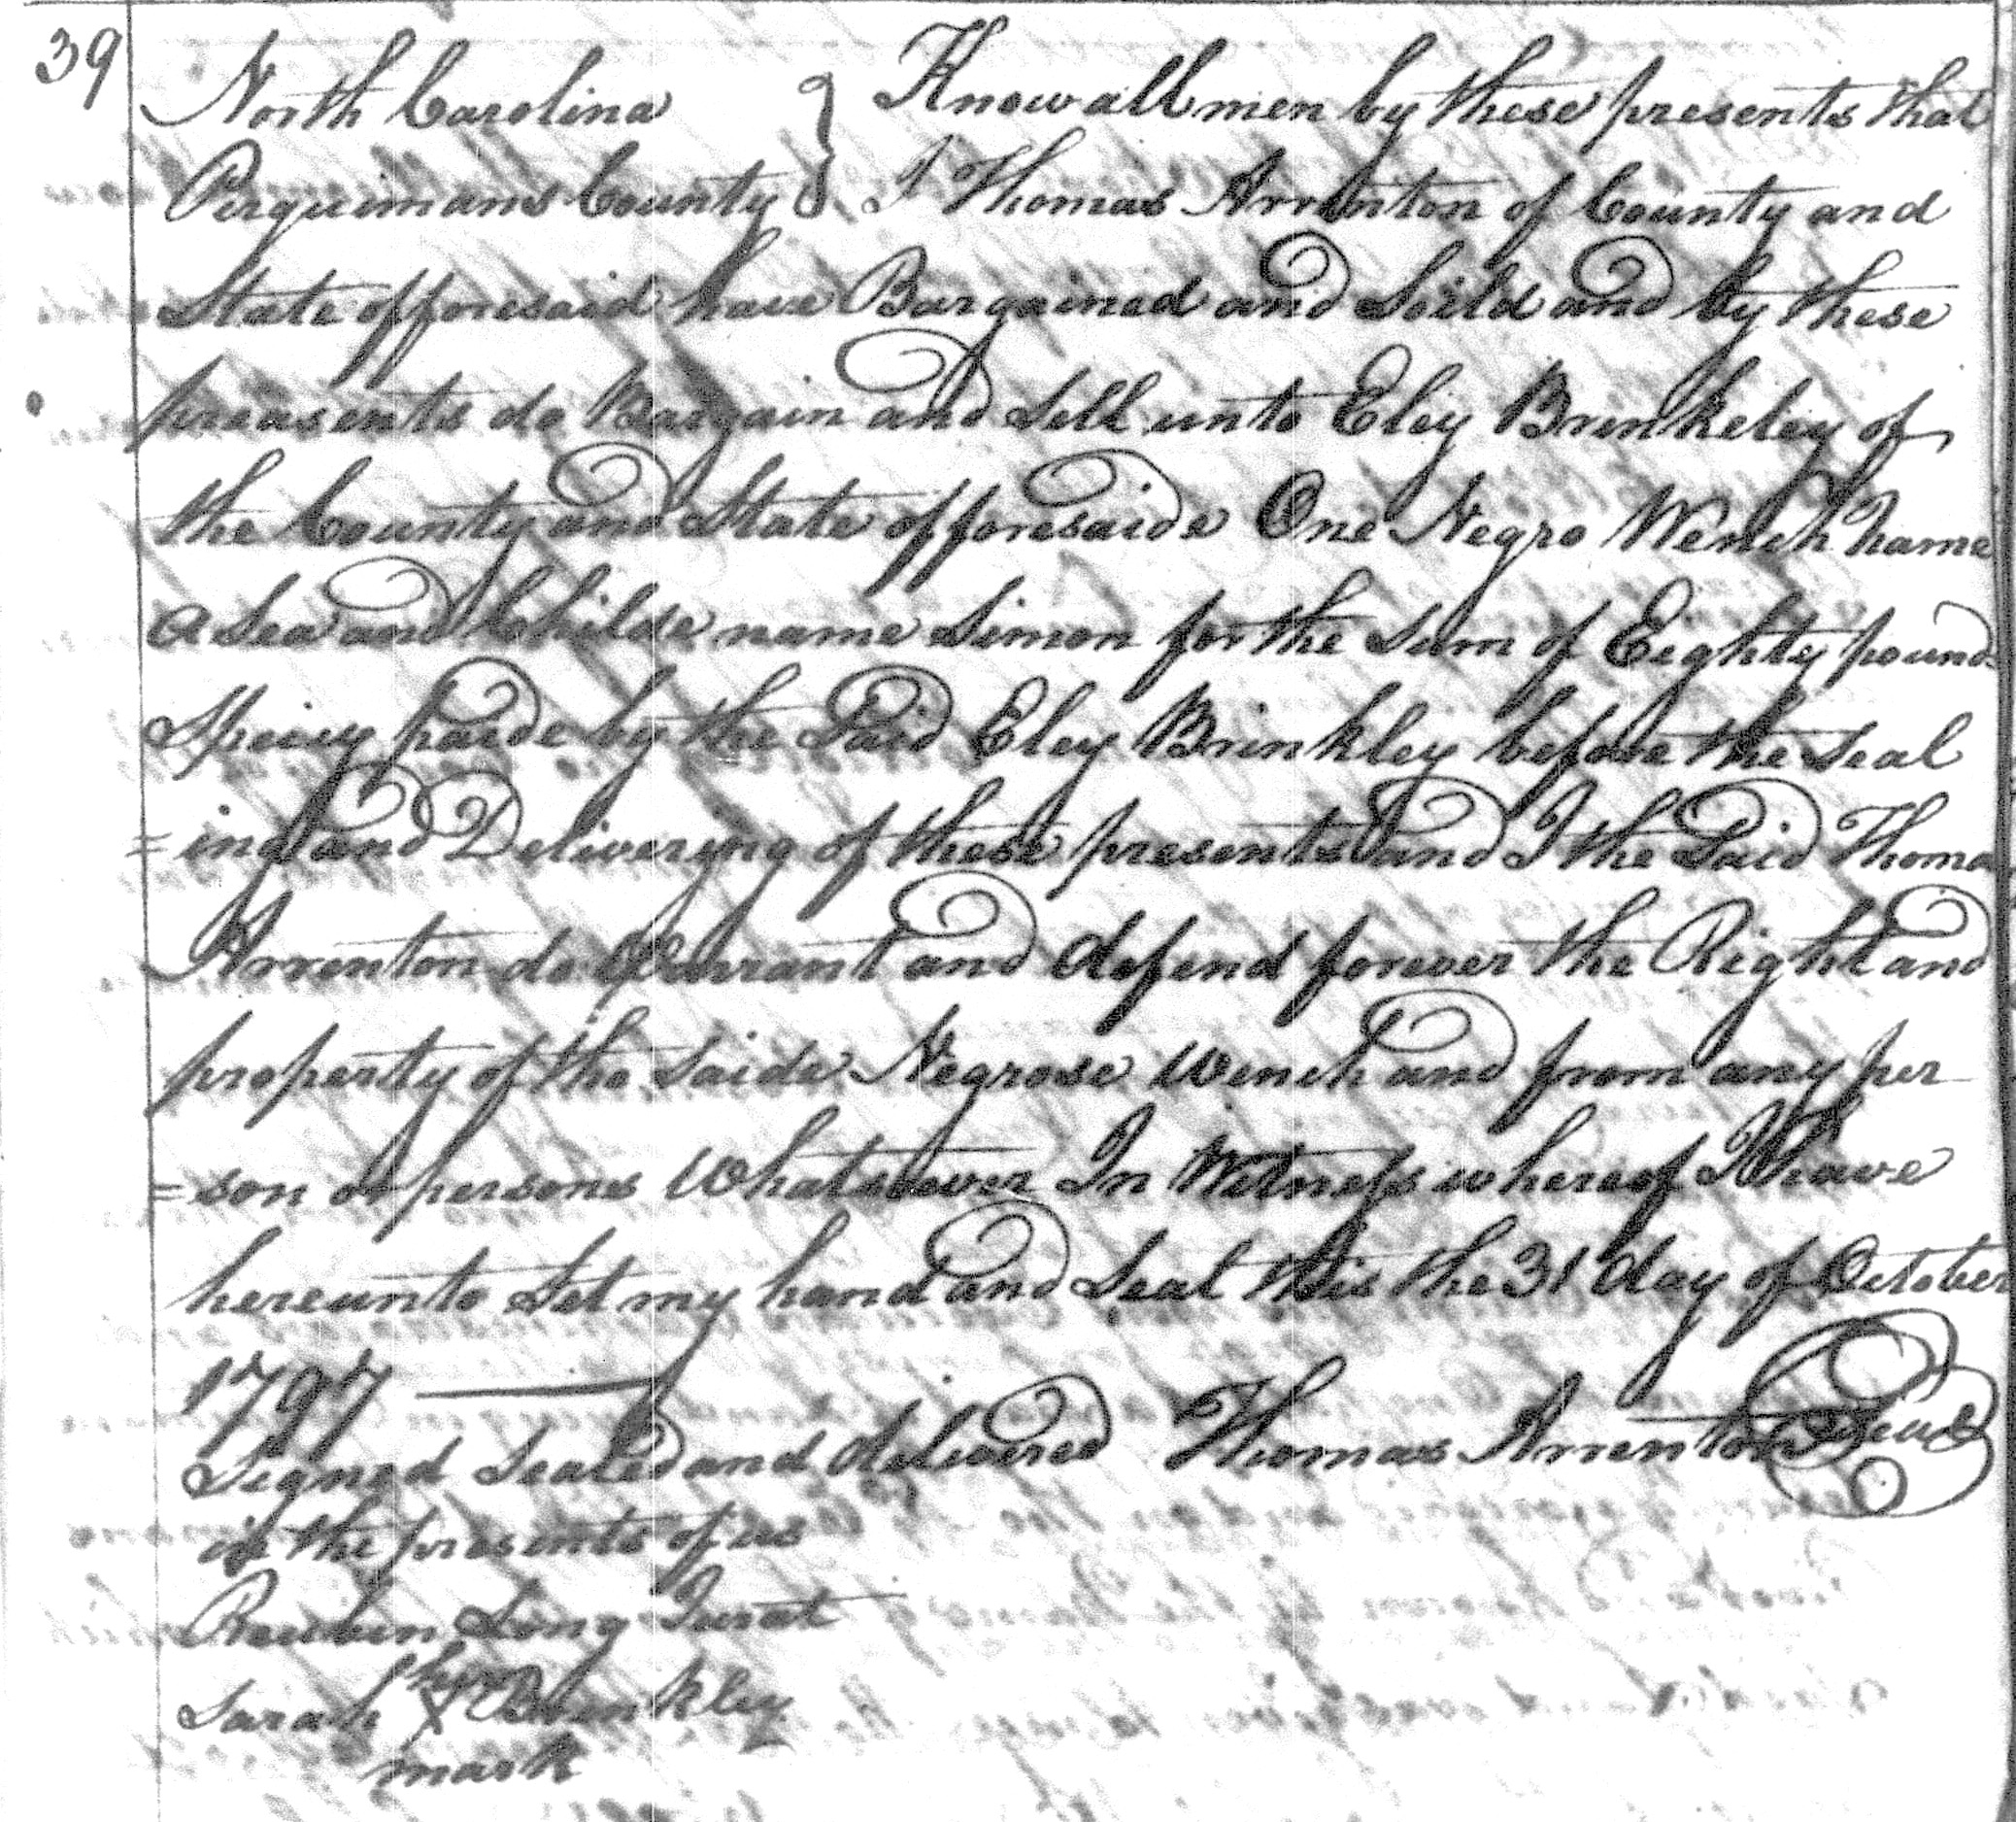 39
North Carolina } Know all men by these presents that
Perquimans County } I Thomas Arrenton of County and
State offoresaid have Bargained and Soild and by these
preasents do Bargain and Sell unto Eley Brinkeley of
the County and State offoresaide One Negro Wench name
a Sea and Childe name Simon for the Sum of Eighty pound
Speicy paide by the Said Eley Brinkley before the Seal
= ing and Delivering of these presents and I the Said Thomas
Arrenton do Warrant and defend forever the Right and
property of the Saide Negrose Wench and from any per
= son or persons Whatsoever In Witness whereof I have
hereunto Set my hand and Seal this the 31 day of October
1797
Signed Sealed and delivered Thomas Arrenton Seal
in the presents of us
Reuben Long Jurat
Sarah her X Brinkley
mark